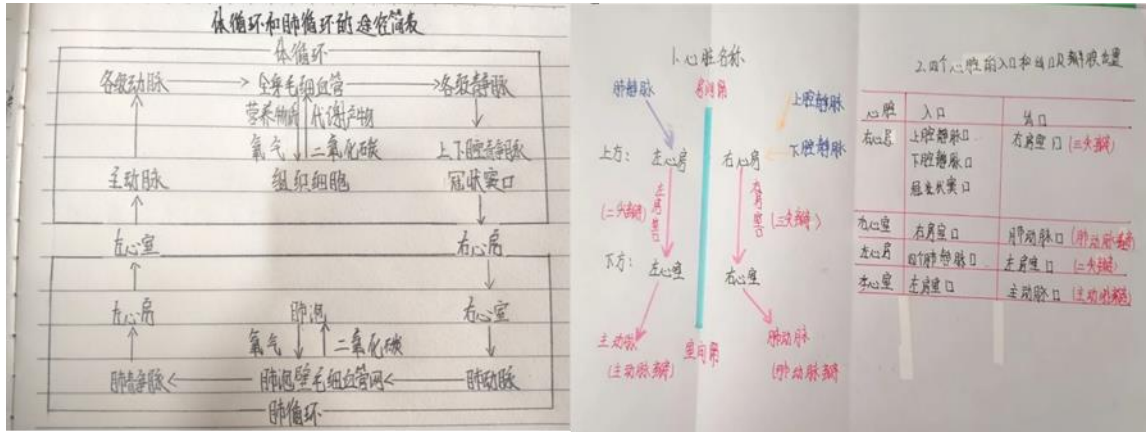 体循环和肺循环的途径简表
体循环
各级动脉 全身毛细血管 各级静脉
营养物质 代谢产物
氧气 二氧化碳 上下腔静脉
主动脉 组织细胞 冠状窦口
左心室 右心房
左心房 肺泡 右心室
氧气 二氧化碳
肺静脉 肺泡壁毛细血管网 肺动脉
肺循环
1.心脏名称
肺静脉 房间隔 上腔静脉
上方: 左心房 右心房 下腔静脉
(二尖瓣) 左房室 右房室 (三尖瓣)
下方: 左心室 右心室
主动脉 室间隔 肺动脉
(主动脉瓣) (肺动脉瓣)
2.四个心腔的入口和出口及瓣膜位置
心腔 入口 出口
右心房 上腔静脉口 右房室口(三尖瓣)
下腔静脉口
冠状窦口
右心室 右房室口 肺动脉口(肺动脉瓣)
左心房 四个肺静脉口 左房室口(二尖瓣)
左心室 左房室口 主动脉口(主动脉瓣)